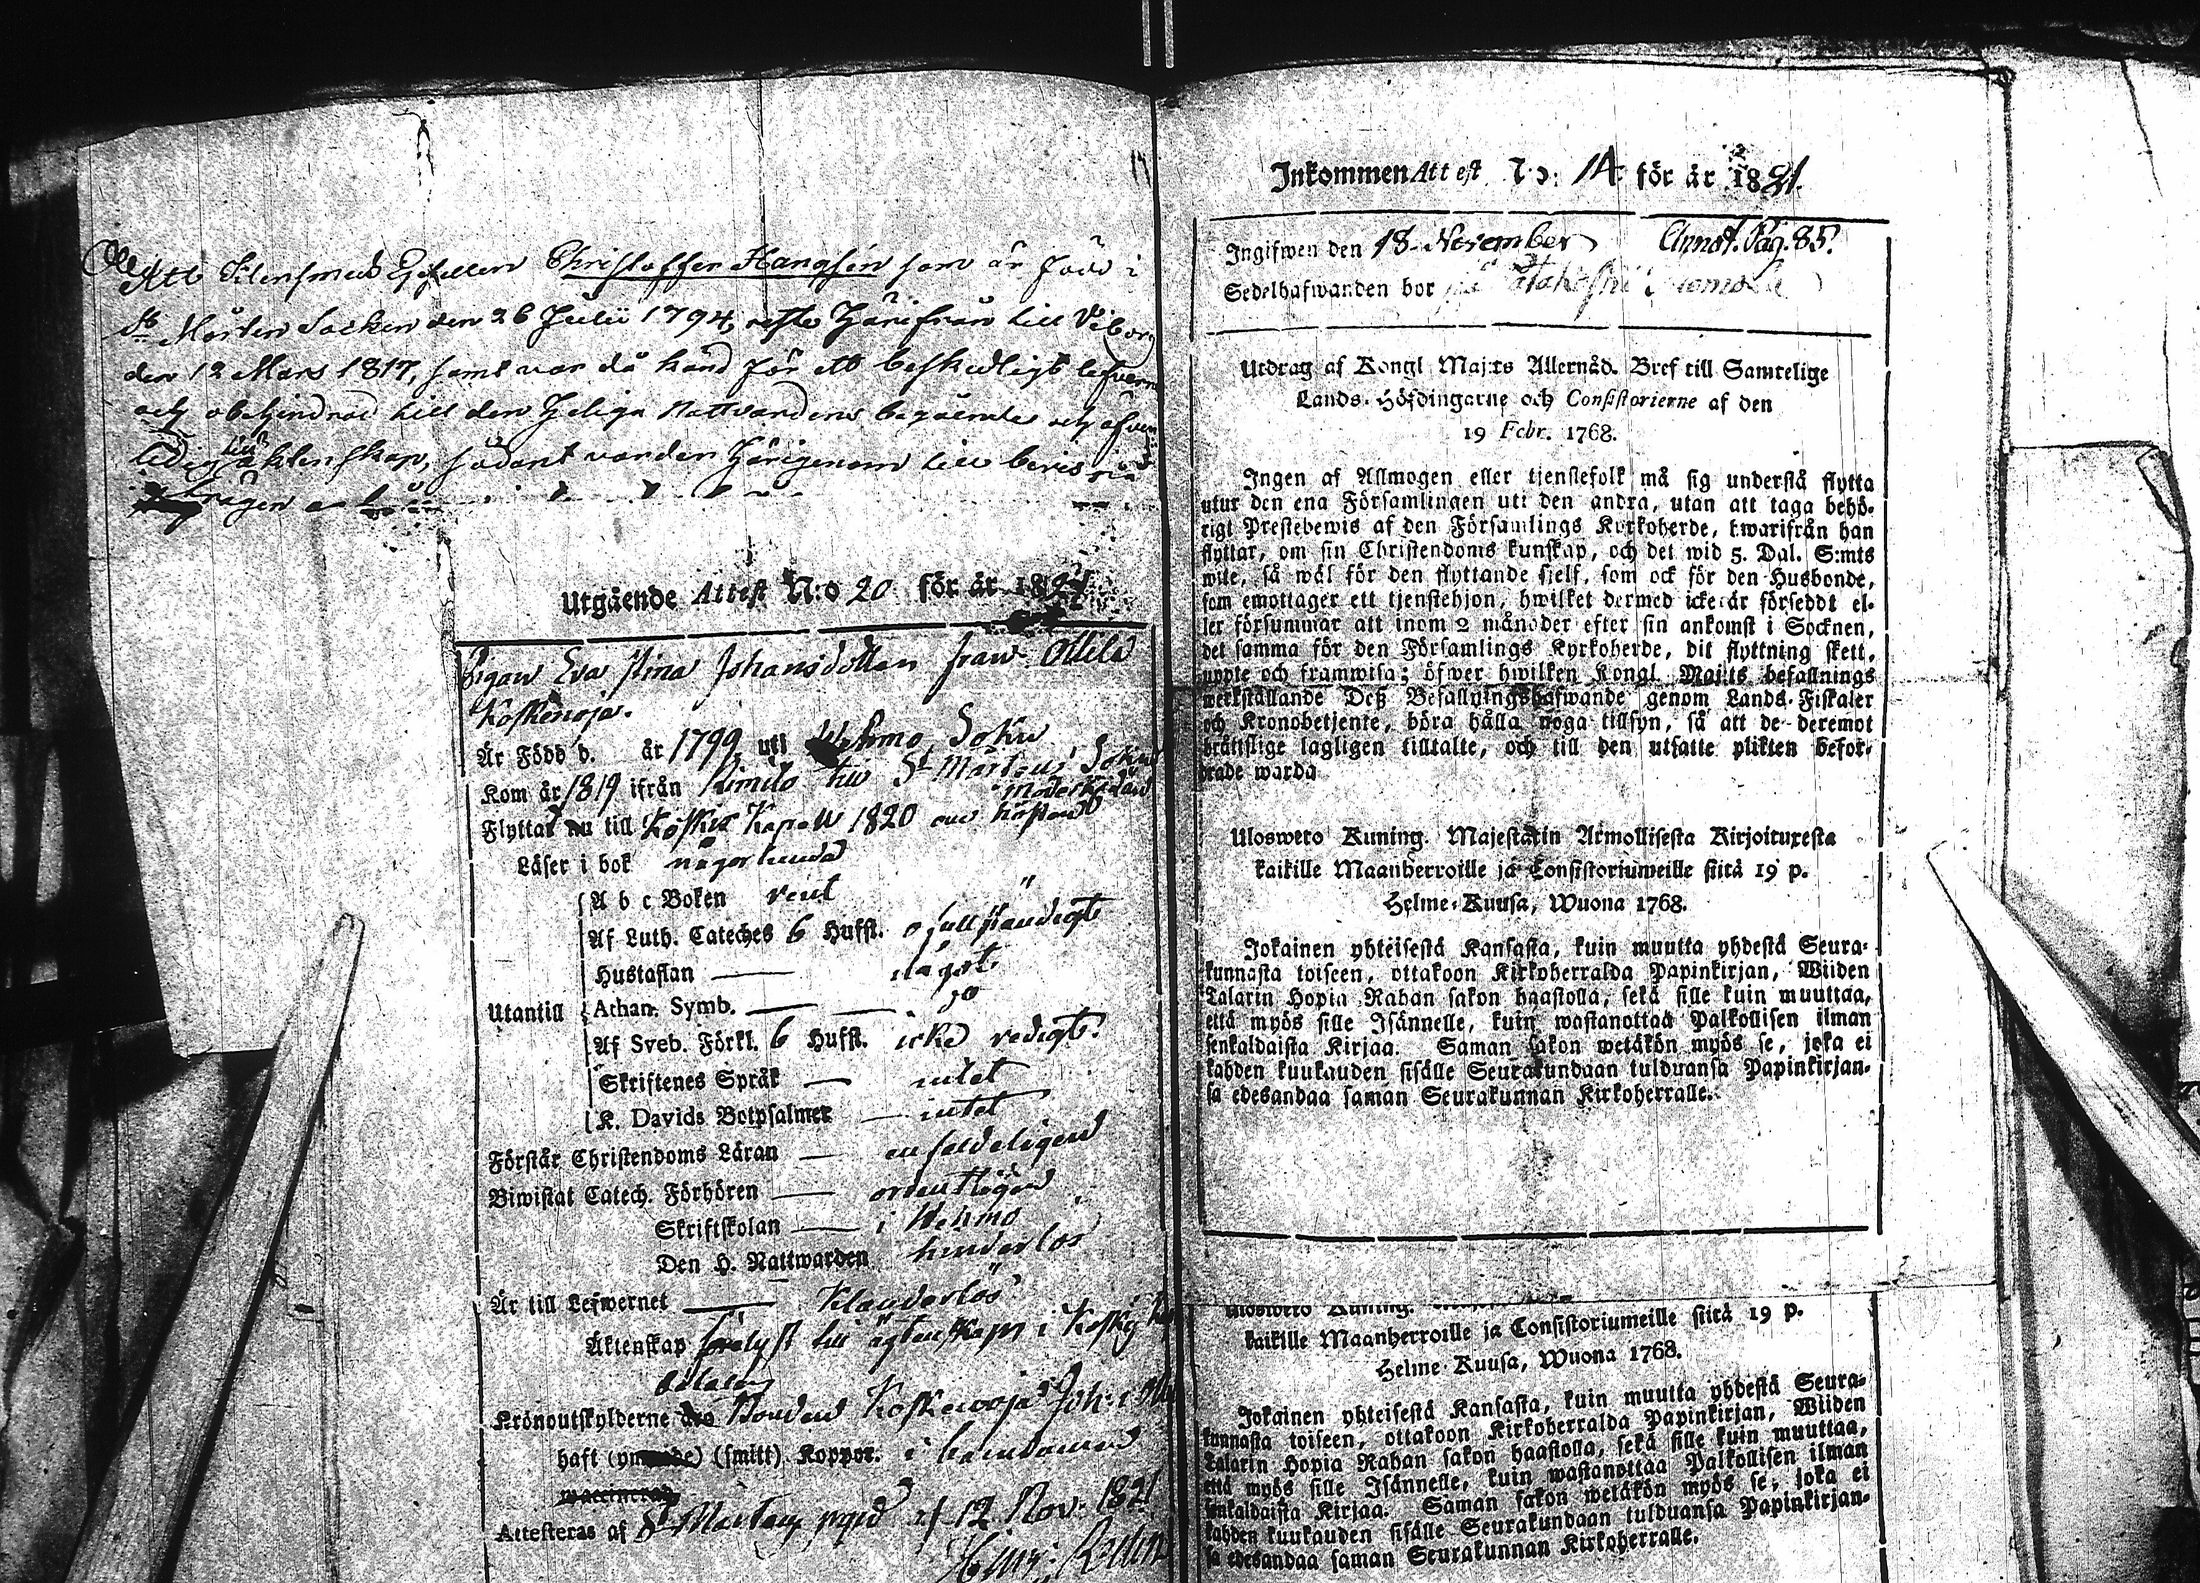 Att Klensmeds Gesellen Christoffer Hangsén som är född i
St Mårtens Socken den 26 Julii 1794, reste härifrån till Viborg
den 12 Mars 1817, samt var då känd för ett beskedligt lefverne
och obehindrad till den Heliga Nattvardens begående och äfven
ledig till äktenskap, sådant varder härigenom till bevis
Utgående Attest N:o 20 för år 1821
Pigan Eva Stina Johansdotter fran Ollila
Koskenoja.
Är Född d. år 1799 uti Wehmo Sokn
Kom år 1819 ifrån Kimito till St Mårtens Sokn
Moderkyrkan
Flyttad nu till Koskis Kapell 1820 om hösten
Läser i bok någorlunda
A b c Boken rent
Af Luth. Cateches 6 Hufst. ofullständigt
Hustaflan något
Utantill Athan. Symb. go
Af Sveb. Förkl. 6 Hufst. icke redigt.
Skriftenes Språk intet
K. Davids Botpsalmer intet
Förstår Christendoms Läran enfaldeligen
Biwistat Catech. Förhören ordentligen
Skriftskolan i Wehmo
Den H. Nattwarden hinderlös
Är till Lefwernet Klanderlös
Äktenskap förelyst till ägtenskap i Koskis
betalas
Krönoutskylderne Bonden Koskenoja Joh:
haft (smitt) Koppor. i barndomen
Attesteras af St Mårtens prgd d 12 Nov. 1821
Inkommen Attest N:o. 14. för år 1821.
Ingifwen den 18. November Annot. Pag. 85.
Sedelhafwanden bor på
Utdrag af Kongl Maj:ts Allernåd. Bref till Samtelige
Lands-Höfdingarne och Consistorierne af den
19 Febr. 1768.
Ingen af Allmogen eller tjenstefolk må sig understå flytta
utur den ena Församlingen uti den andra, utan att taga behö-
rigt Prestebewis af den Församlings Kyrkoherde, hwarifrån han
flyttar, om sin Christendoms kunskap, och det wid 5. Dal. S:mts
wite, så wäl för den flyttande sjelf, som ock för den Husbonde,
som emottager ett tjenstehjon, hwilket dermed icke är försedt el-
ler försummar att inom 2 månader efter sin ankomst i Socknen,
det samma för den Församlings Kyrkoherde, dit flyttning skett,
uppte och framwisa; öfwer hwilken Kongl. Maj:ts befallnings
werkställande Deß Befallningshafwande genom Lands-Fiskaler
och Kronobetjente, böra hålla noga tillsyn, så att de deremot
bråttslige lagligen tilltalte, och till den utsatte plikten befor-
drade warda
Uloswero Kuning. Majestätin Armollisesta Kirjoituxesta
kaikille Maanherroille ja Consistoriumeille siitä 19 p.
Helme-Kuusa, Wuona 1768.
Jokainen yhteisestä Kansasta, kuin muutta yhdestä Seura-
kunnasta toiseen, ottakoon Kirkoherralda Papinkirjan, Wiiden
Talarin Hopia Rahan sakon haastolla, sekä sille kuin muuttaa,
että myös sille Isännelle, kuin wastanottaa Palkollisen ilman
senkaldaista Kirjaa. Saman sakon wetäkön myös se, joka ei
kahden kuukauden sisälle Seurakundaan tulduansa Papinkirjan-
sa edesandaa saman Seurakunnan Kirkoherralle.
Uloswero Kuning.
kaikille Maanherroille ja Consistoriumeille siitä 19 p.
Helme-Kuusa, Wuona 1768.
Jokainen yhteisestä Kansasta, kuin muutta yhdestä Seura-
kunnasta toiseen, ottakoon Kirkoherralda Papinkirjan, Wiiden
Talarin Hopia Rahan sakon haastolla, sekä sille kuin muuttaa,
että myös sille Isännelle, kuin wastanottaa Palkollisen ilman
senkaldaista Kirjaa. Saman sakon wetäkön myös se, joka ei
kahden kuukauden sisälle Seurakundaan tulduansa Papinkirjan-
sa edesandaa saman Seurakunnan Kirkoherralle.